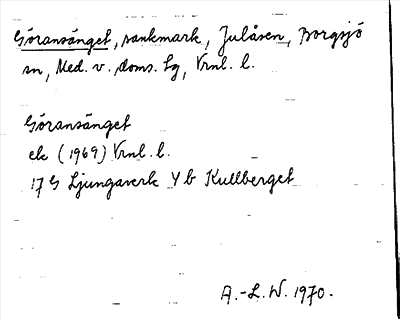 Göransänget, sankmark, Julåsen, Borgsjö
sn, Med. v. doms. tg, Vrnl. l.
Göransänget
ek (1969) Vrnl. l.
17 G Ljungaverk Y b Kullberget
A.-L. W. 1970.